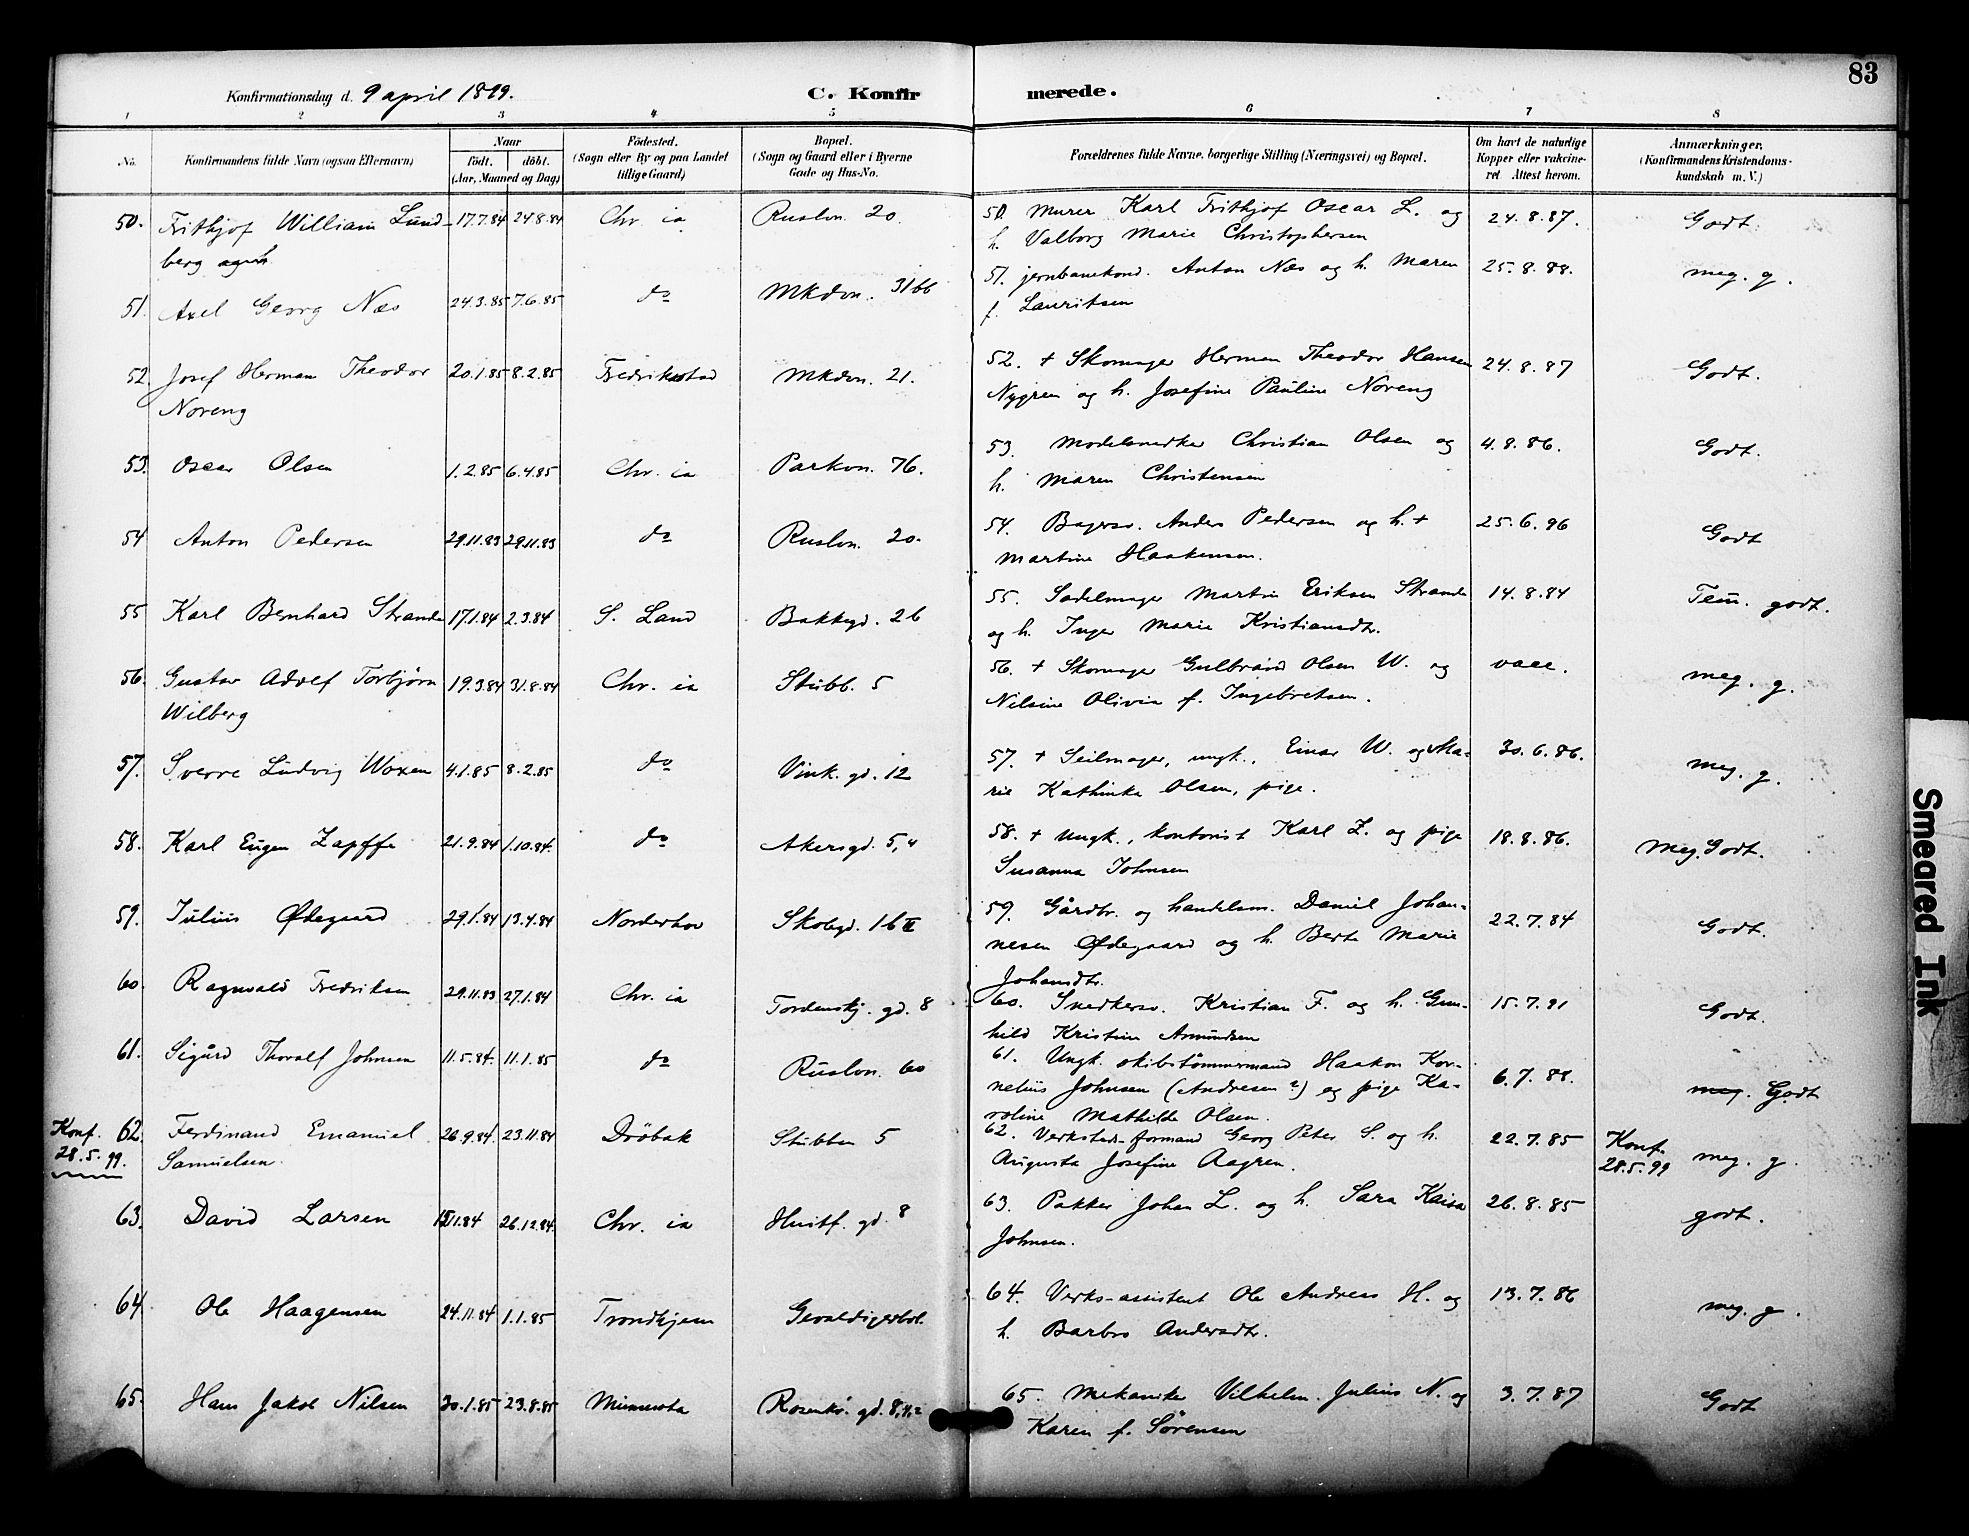 83
Konfirmationsdag d. 9 april 1899.
C. Konfirmerede.
1 2 3 4 5 6 7 8
No.
Konfirmandens fulde Navn (ogsaa Efternavn)
Naar
födt. döbt.
(Aar, Maaned og Dag)
Födested.
(Sogn eller By og paa Landet
tillige Gaard)
Bopæl.
(Sogn og Gaard eller i Byerne
Gade og Hus-No.
Forældrenes fulde Navne, borgerlige Stilling (Næringsvei) og Bopæl.
Om havt de naturlige
Kopper eller vakcine-
ret Attest herom.
Anmærkninger,
(Konfirmandens Kristendoms-
kundskab m. V.)
50. Frithjof William Lund- 17.7.84 24.8.84 Chr. ia Ruslvn. 20. 50. Murer Karl Frithjof Oscar L. og 24.8.87. Godt.
berg h. Valborg Marie Christophersen
51. Axel Georg Næs 24.3.85 7.6.85 do Mkdvn. 31 bb 51. jernbanekond. Anton Næs og h. Maren 25.8.88. meg. g.
f. Lauritsen
52. Josef Herman Theodor 20.1.85 8.2.85 Fredrikstad Mkdvn. 21. 52. + Skomager Herman Theodor Hansen 24.8.87 Godt.
Noreng Nygren og h. Josefine Pauline Noreng
53. Oscar Olsen 1.2.85 6.4.85 Chr. ia Parkvn. 76. 53. Modelsnedker Christian Olsen og 4.8.86. Godt.
h. Maren Christensen
54 Anton Pedersen 29.11.83 29.11.83 do Ruslvn. 20. 54. Bagersv. Anders Pedersen og h. + 25.6.96 Godt
Martine Haakensen.
55 Karl Bernhard Strande 17.1.84 2.3.84 S. Land Bakkegd. 26 55. Sadelmager Martin Eriksen Strande 14.8.84 Tem. godt.
og h. Inger Marie Kristiansdtr.
56. Gustav Adolf Torbjørn 19.3.84 31.8.84 Chr. ia Stubb. 5 56. + Skomager Gulbrand Olsen W. og vacc. meg. g.
Wilberg Nilsine Olivia f. Ingebretsen.
57. Sverre Ludvig Woxen 4.1.85 8.2.85 do Vink. gd. 12 57. + Seilmager, ungk., Einar W. og Ma- 30.6.86. meg. g.
rie Kathinka Olsen, pige.
58. Karl Eugen Zapffe 21.9.84 1.10.84. do Akersgd. 5,4 58. + Ungk., kontorist Karl Z. og pige 18.8.86. Meg. Godt.
Susanna Johnsen
59. Julius Ødegaard 29.1.84 13.4.84 Norderhov Skolegd. 16 II 59. Gårdbr. og handelsm. Daniel Johan- 22.7.84 Godt.
nesen Ødegaard og h. Berte Marie
Johansdtr.
60. Ragnvald Fredriksen 29.11.83 27.1.84 Chr. ia Tordenskj. gd. 8 60. Snedkersv. Kristian F. og h. Gun- 15.7.91 Godt.
hild Kristine Amundsen
61. Sigurd Thoralf Johnsen 11.5.84. 11.1.85 do Ruslvn. 60 61. Ungk. skibstømmermand Haakon Kor- 6.7.88. meg. Godt
nelius Johnsen (Andresen?) og pige Ka-
roline Mathilde Olsen.
Konf. 62. Ferdinand Emanuel 26.9.84. 23.11.84 Drøbak Stubben 5 62. Verksteds-formand Georg Peter S. og h. 22.7.85 Konf. meg. g.
28.5.99. Samuelsen. Augusta Josefine Aagren. 28.5.99
63. David Larsen 26.12.84. Chr. ia Huitf. gd. 8 63. Pakker Johan L. og h. Sara Kaisa 26.8.85 godt.
Johnsen.
64 Ole Haagensen 24.11.84 1.1.85 Trondhjem Gevaldigerbol. 64. Verks-assistent Ole Andreas H. og 13.7.86 meg. g.
h. Barbro Andersdtr.
65. Hans Jakob Nilsen 30.1.85 23.8.85 Minnesota Rosenkr. gd. 8, 65. Mekaniker Vilhelm Julius N. og 3.7.87 Godt
Karen f. Sørensen
Smeared Ink